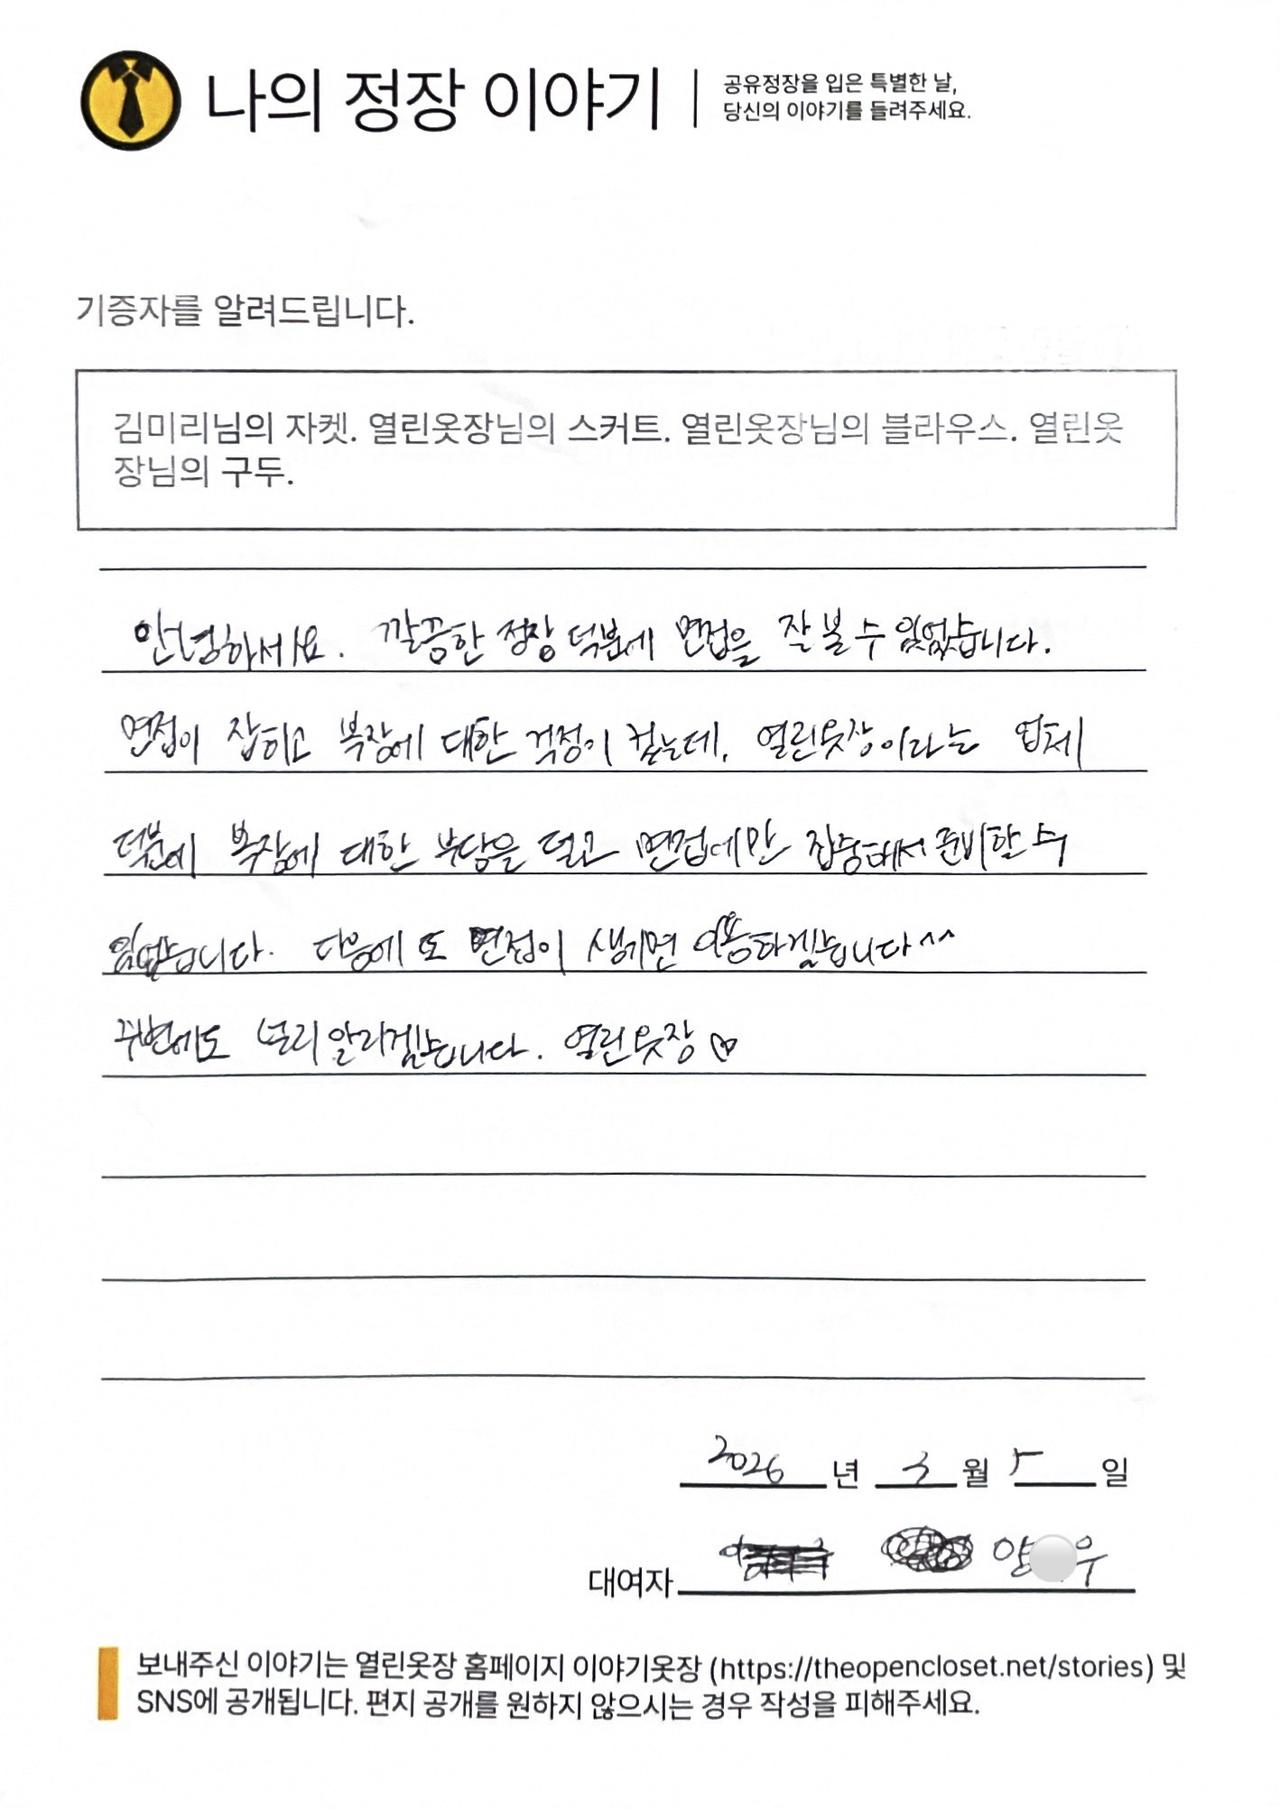 나의 정장 이야기
공유정장을 입은 특별한 날,
당신의 이야기를 들려주세요.
기증자를 알려드립니다.
김미리님의 자켓. 열린옷장님의 스커트. 열린옷장님의 블라우스. 열린옷
장님의 구두.
안녕하세요. 깔끔한 정장 덕분에 면접을 잘 볼 수 있었습니다.
면접이 잡히고 복장에 대한 걱정이 컸는데, 열린옷장이라는 업체
덕분에 복장에 대한 부담을 덜고 면접에만 집중해서 준비할 수
있었습니다. 다음에 또 면접이 생기면 이용하겠습니다^^
주변에도 널리 알리겠습니다. 열린옷장♡
2026 년 3 월 5 일
대여자 양 우
보내주신 이야기는 열린옷장 홈페이지 이야기옷장 (https://theopencloset.net/stories) 및
SNS에 공개됩니다. 편지 공개를 원하지 않으시는 경우 작성을 피해주세요.